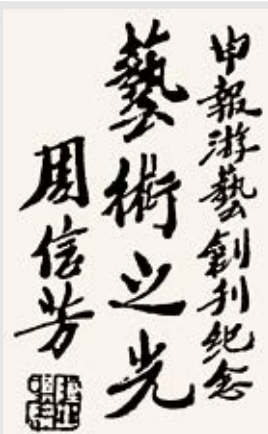 申報游藝創刊紀念
藝術之光
周信芳